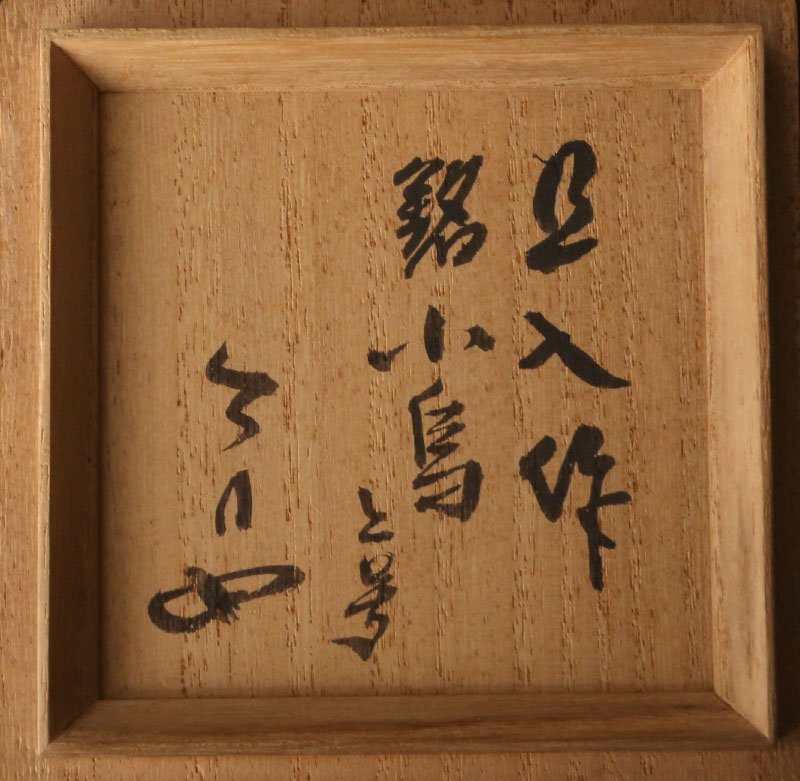 旦入作
銘小鳥
と号
今日